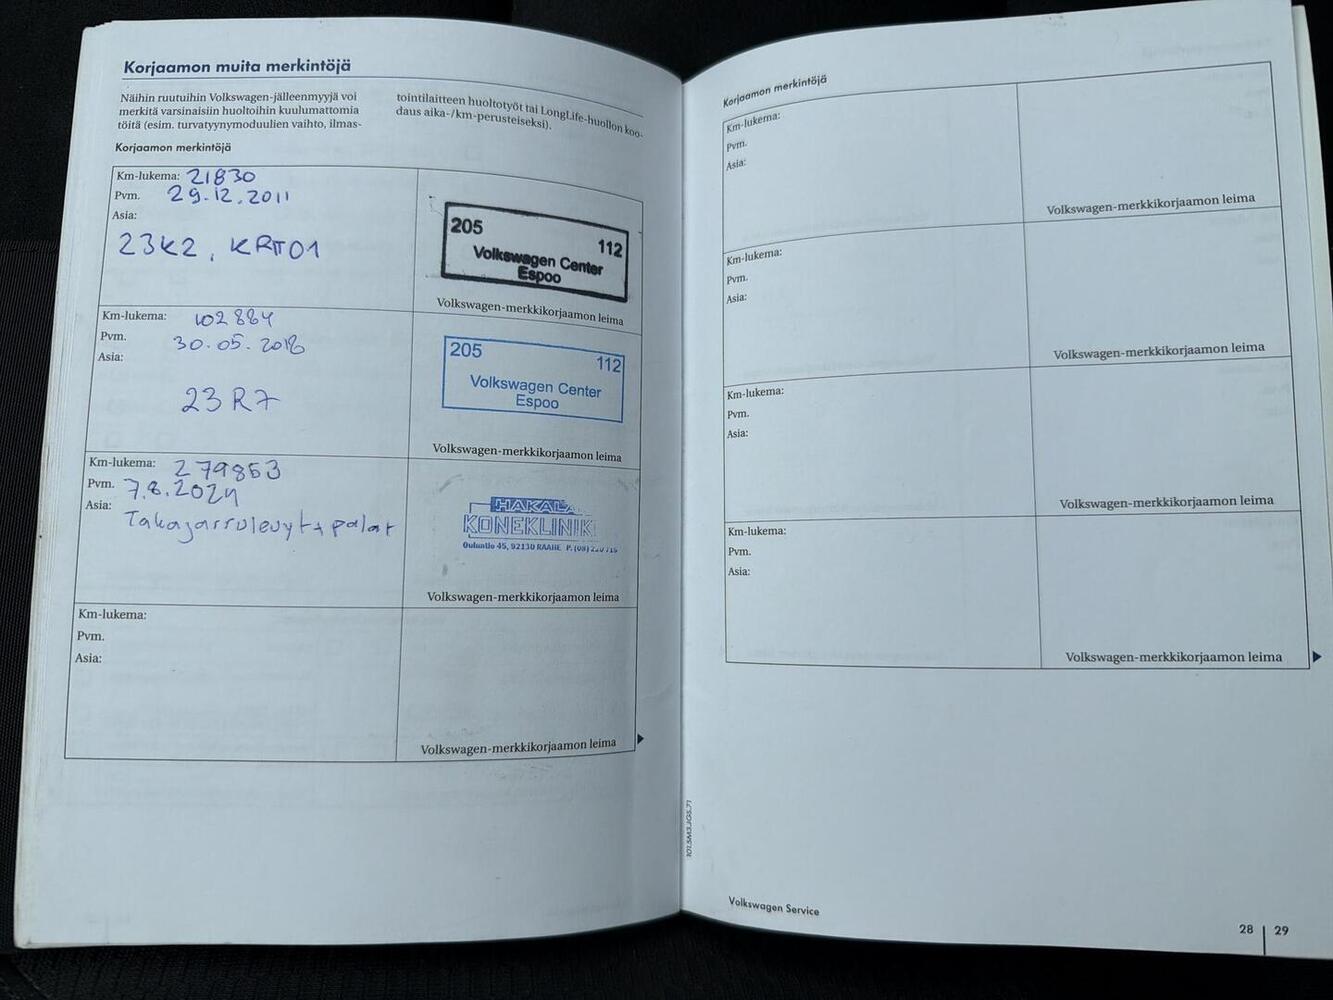 Korjaamon muita merkintöjä
Näihin ruutuihin Volkswagen-jälleenmyyjä voi
merkitä varsinaisiin huoltoihin kuulumattomia
töitä (esim. turvatyynymoduulien vaihto, ilmas-
tointilaitteen huoltotyöt tai LongLife-huollon koo-
daus aika-/km-perusteiseksi).
Korjaamon merkintöjä
Km-lukema: 21830
Pvm. 29.12.2011
Asia:
23K2, KRT01
205
112
Volkswagen Center
Espoo
Volkswagen-merkkikorjaamon leima
Km-lukema: 102884
Pvm. 30.05.2016
Asia:
23R7
205
112
Volkswagen Center
Espoo
Volkswagen-merkkikorjaamon leima
Km-lukema: 279853
Pvm. 7.8.2024
Asia: Takajarrulevyt + palat
HAKALA
KONEKLINIK
Ouluntie 45, 92130 RAAHE P. (08)
Volkswagen-merkkikorjaamon leima
Km-lukema:
Pvm.
Asia:
Volkswagen-merkkikorjaamon leima
Korjaamon merkintöjä
Km-lukema:
Pvm.
Asia:
Volkswagen-merkkikorjaamon leima
Km-lukema:
Pvm.
Asia:
Volkswagen-merkkikorjaamon leima
Km-lukema:
Pvm.
Asia:
Volkswagen-merkkikorjaamon leima
Km-lukema:
Pvm.
Asia:
Volkswagen-merkkikorjaamon leima
101.5M3.JGS.71
Volkswagen Service
28 | 29